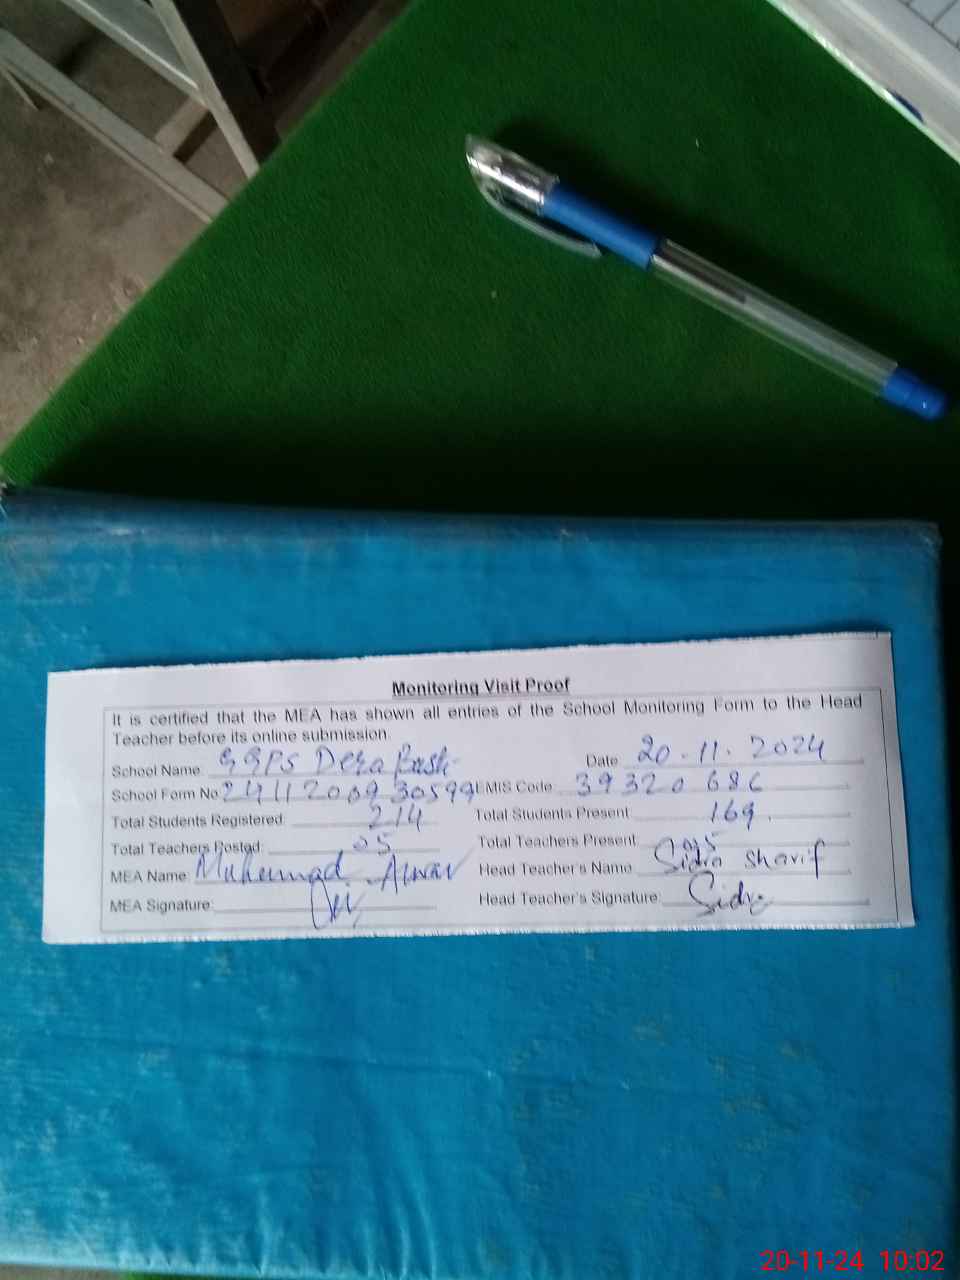 Monitoring Visit Proof
It is certified that the MEA has shown all entries of the School Monitoring Form to the Head
Teacher before its online submission.
School Name: GGPS Dera Bash Date 20-11-2024
School Form No 2411200930599 EMIS Code 39320686
Total Students Registered: 214 Total Students Present 169
Total Teachers Posted: 05 Total Teachers Present 05
MEA Name: Muhammad Anwar Head Teacher's Name Sidra sharif
MEA Signature: Head Teacher's Signature: Sidra
20-11-24 10:02